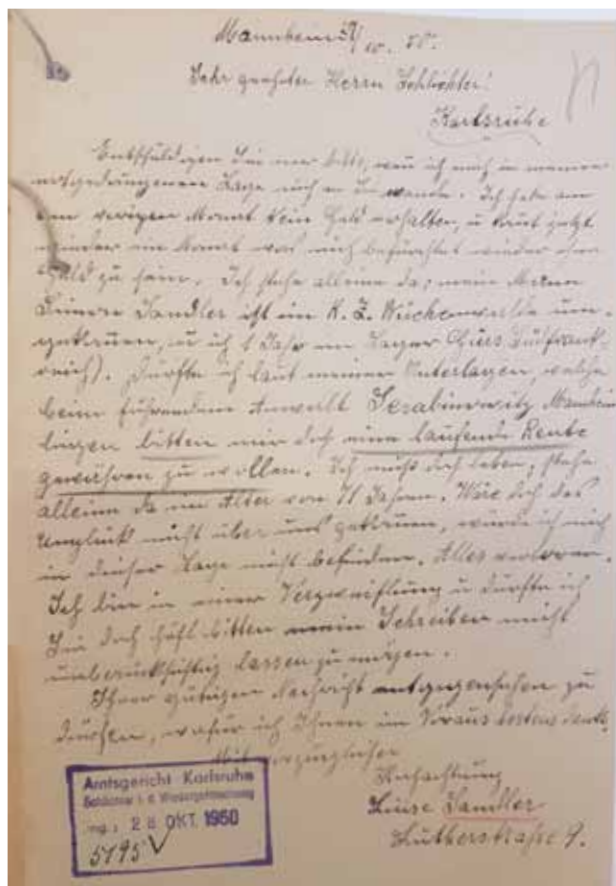 Mannheim 27/10. 50.
Sehr geehrter Herrn Schlichter!
Karlsruhe
Entschuldigen Sie mir bitte, wenn ich mich in meiner
notgedrungenen Lage mich an Sie wende. Ich habe am
vorigen Monat kein Geld erhalten, u laut jetzt
wieder ein Monat was mich befürchtet wieder ohne
Geld zu sein. Ich stehe alleine da; mein Mann
Sandler ist im K. Z. Buchenwalde um-
gekommen, u ich 1 Jahr im Lager Gurs Südfrank-
reich). Dürfte ich laut meiner Unterlagen, welche
beim führendem Anwalt Mannheim
liegen bitten mir doch eine laufende Rente
gewähren zu wollen. Ich muß doch leben, stehe
alleine da im Alter von 71 Jahren. Wäre doch das
Unglück nicht über uns gekommen, würde ich mich
in dieser Lage nicht befinden. Alles verloren.
Ich bin in einer Verzweiflung u dürfte ich
Sie doch höfl. bitten mein Schreiben nicht
unberücksichtig lassen zu mögen.
Ihrer gütigen Nachricht entgegensehen zu
dürfen, wofür ich Ihnen im Voraus bestens danke.
Mit vorzüglicher
Hochachtung
Luise Sandler
Lutherstraße 9.
Amtsgericht Karlsruhe
Schlichter f. d. Wiedergutmachung
Eing.: 28. OKT. 1950
5195